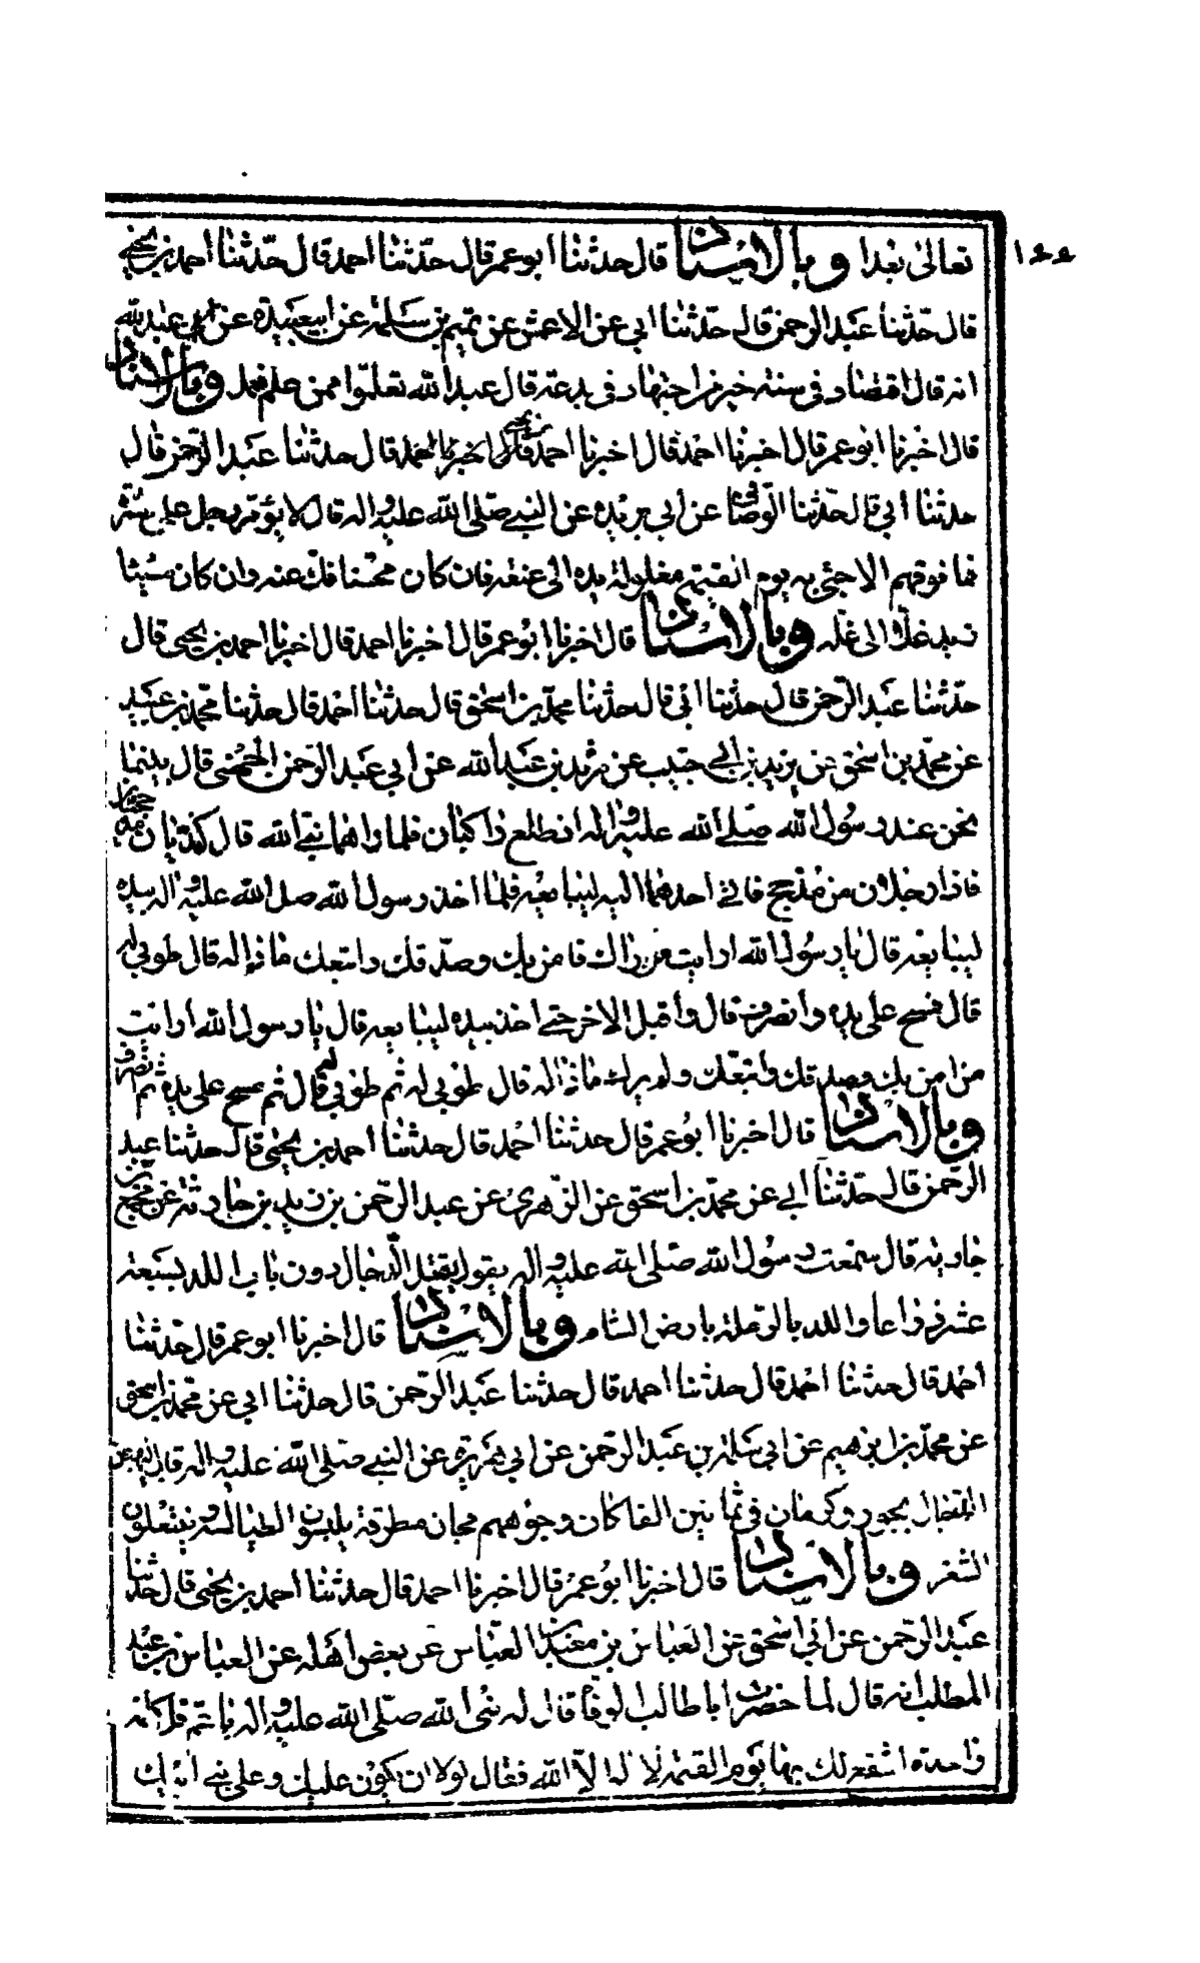 ١٤٤
تعالى بعدا وبالاسناد قال حدثنا ابو عمر قال حدثنا احمد قال حدثنا احمد بن يحيى
قال حدثنا عبد الرحمن قال حدثنا ابي عن الاعمش عن تميم بن سلمة عن ابي عبيدة عن عبد الله
انه قال اقتصاد في سنة خير من اجتهاد في بدعة قال عبد الله تعلموا ممن علم فعمل وبالاسناد
قال اخبرنا ابو عمر قال اخبرنا احمد قال اخبرنا احمد بن يحيى قال اخبرنا احمد قال حدثنا عبد الرحمن قال
حدثنا ابي قال حدثنا الوصافي عن ابي بريدة عن النبي صلى الله عليه واله قال لا يؤمر رجل على عشرة
فما فوقهم الا جئ به يوم القيمة مغلولة يده الى عنقه فان كان محسنا فك عنه وان كان مسيئا
زيد غلا الى غله وبالاسناد قال اخبرنا ابو عمر قال اخبرنا احمد قال اخبرنا احمد بن يحيى قال
حدثنا عبد الرحمن قال حدثنا ابي قال حدثنا محمد بن اسحق قال حدثنا احمد قال حدثنا محمد بن عبيد
عن محمد بن اسحق عن يزيد بن ابي حبيب عن مرثد بن عبد الله عن ابي عبد الرحمن الجهني قال بينما
نحن عند رسول الله صلى الله عليه واله اذ طلع راكبان فلما راهما نبي الله قال كنديان مذحجيان
فاذا رجلان من مذحج فاتى احدهما اليه ليبايعه فلما اخذ رسول الله صلى الله عليه واله بيده
ليبايعه قال يا رسول الله ارايت من راك فامن بك وصدقك واتبعك ماذا له قال طوبى له
قال فمسح على يده وانصرف قال واقبل الاخر حتى اخذ بيده ليبايعه قال يا رسول الله ارايت
من امن بك وصدقك واتبعك ولم يرك ماذا له قال طوبى له ثم طوبى له قال ثم مسح على يده ثم انصرف
وبالاسناد قال اخبرنا ابو عمر قال حدثنا احمد قال حدثنا احمد بن يحيى قال حدثنا عبد
الرحمن قال حدثنا ابي عن محمد بن اسحق عن الزهري عن عبد الرحمن بن يزيد بن جارية عن مجمع بن
جارية قال سمعت رسول الله صلى الله عليه واله يقول يقتل الدجال دون باب اللد بسبعة
عشر ذراعا واللد بالرملة بارض الشام وبالاسناد قال اخبرنا ابو عمر قال حدثنا
احمد قال حدثنا احمد قال حدثنا احمد قال حدثنا عبد الرحمن قال حدثنا ابي عن محمد بن اسحق
عن محمد بن ابرهيم عن ابي سلمة بن عبد الرحمن عن ابي هريرة عن النبي صلى الله عليه واله قال
الدجال بجور وكرمان في ثمانين الفا كان وجوههم مجان مطرقة يلبسون الطيالسة وينتعلون
الشعر وبالاسناد قال اخبرنا ابو عمر قال اخبرنا احمد قال حدثنا احمد بن يحيى قال حدثنا
عبد الرحمن عن ابي اسحق عن العباس بن معبد بن العباس عن بعض اهله عن العباس بن عبد
المطلب انه قال لما حضرت ابا طالب الوفاة قال له نبي الله صلى الله عليه واله يا عم قل كلمة
واحدة اشفع لك بها يوم القيمة لا اله الا الله فقال لولا ان يكون عليك وعلى بني ابيك